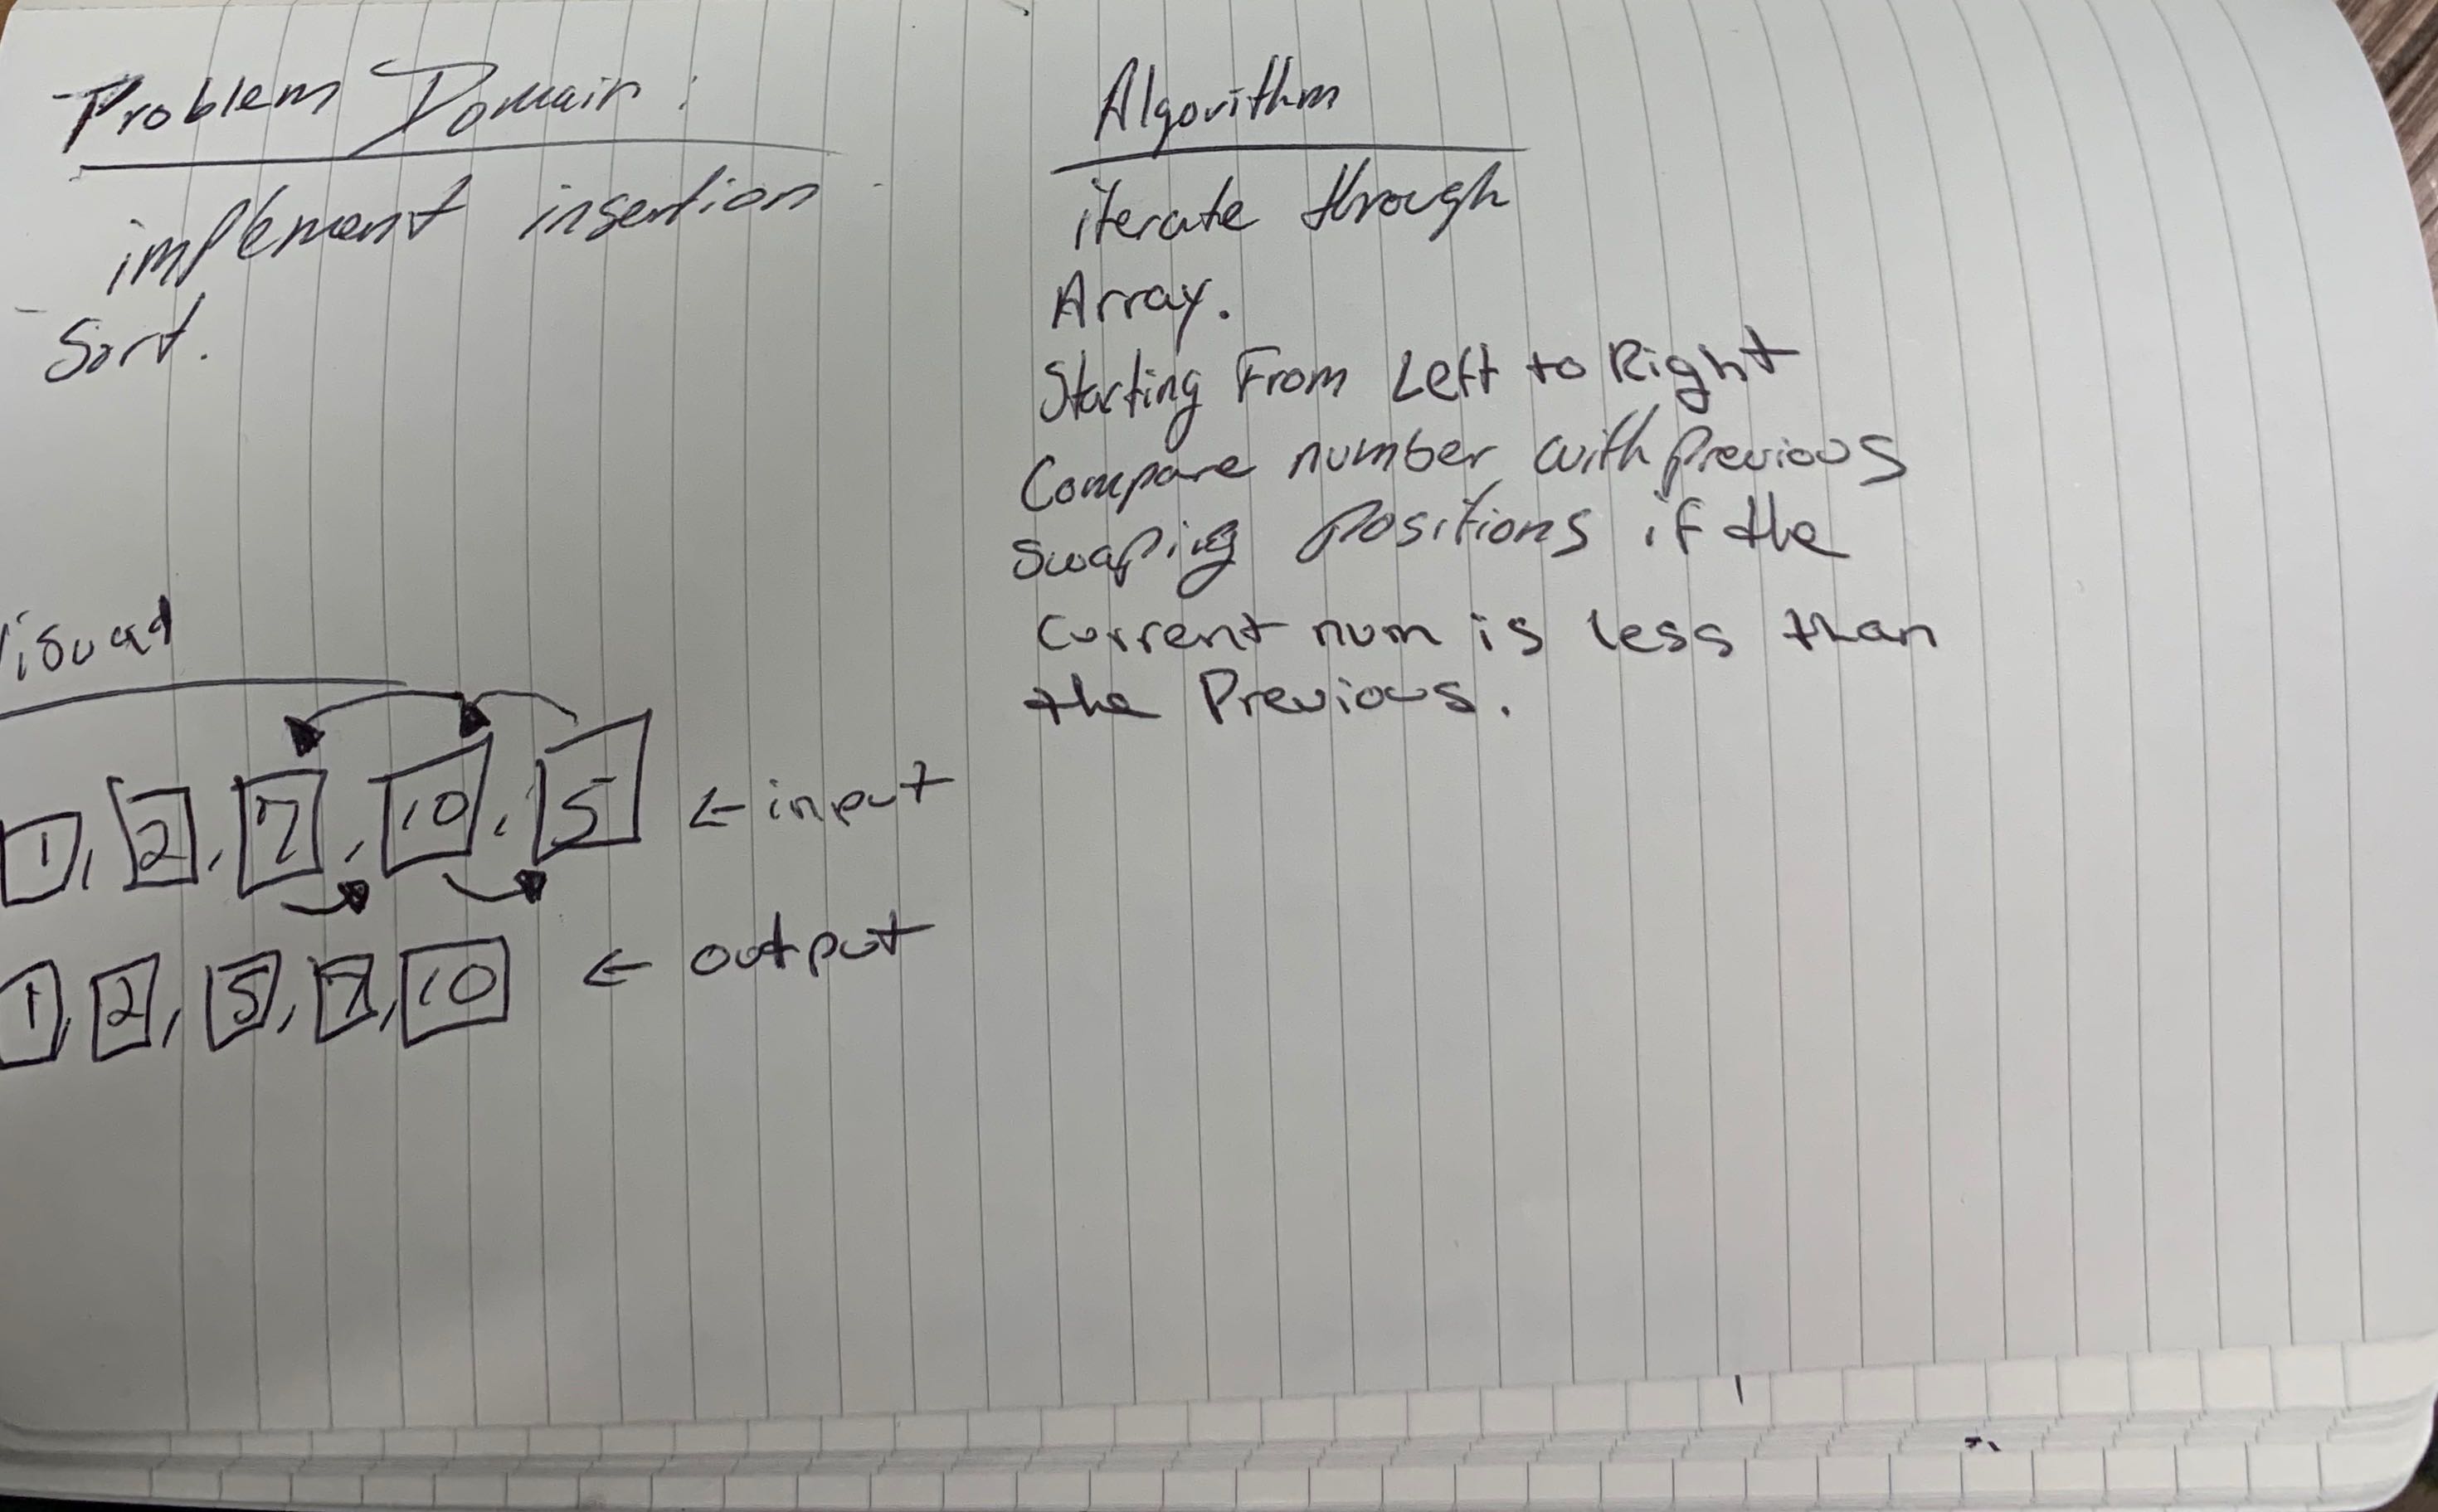 Problem Domain:
implement insertion
Sort.
Visual
1, 2, 7, 10, 5 ← input
1, 2, 5, 7, 10 ← output
Algorithm
iterate through
Array.
Starting From Left to Right
Compare number with Previous
swaping positions if the
Current num is less than
the Previous.